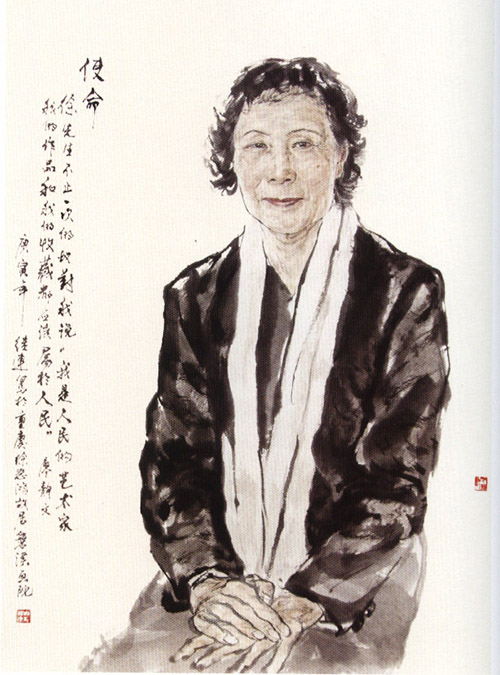 使命
徐先生不止一次的對我说“我是人民的艺术家
我的作品和我的收藏都应该属於人民” 廖静文
庚寅年 建寫於重慶徐悲鸿故居磐溪画院